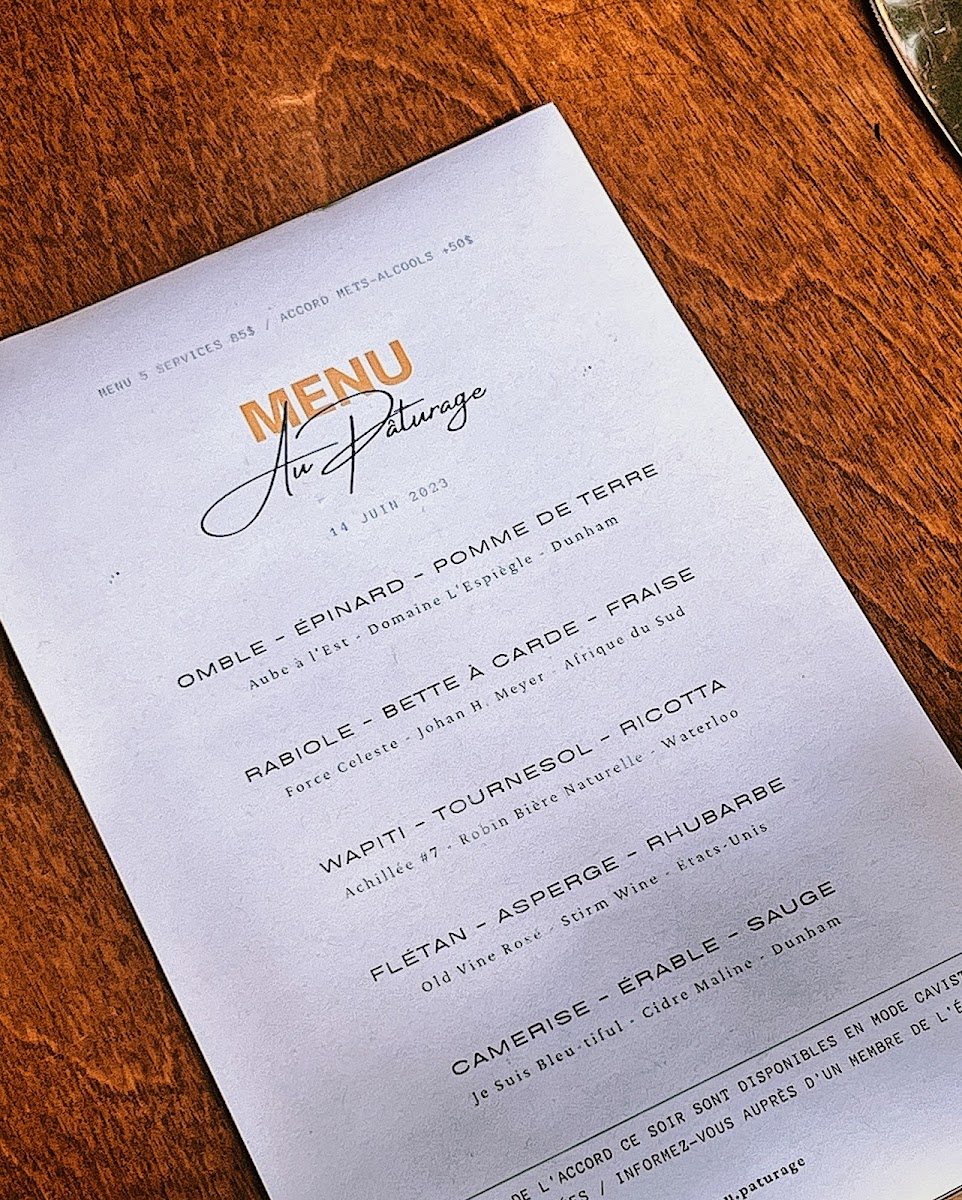 MENU 5 SERVICES 85$ / ACCORD METS-ALCOOLS +50$
MENU
Au Pâturage
14 JUIN 2023
OMBLE - ÉPINARD - POMME DE TERRE
Aube à l'Est - Domaine L'Espiègle - Dunham
RABIOLE - BETTE À CARDE - FRAISE
Force Celeste - Johan H. Meyer - Afrique du Sud
WAPITI - TOURNESOL - RICOTTA
Achillée #7 - Robin Bière Naturelle - Waterloo
FLÉTAN - ASPERGE - RHUBARBE
Old Vine Rosé - Stirm Wine - États-Unis
CAMERISE - ÉRABLE - SAUGE
Je Suis Bleu-tiful - Cidre Maline - Dunham
DE L'ACCORD CE SOIR SONT DISPONIBLES EN MODE
/ INFORMEZ-VOUS AUPRÈS D'UN MEMBRE DE
.paturage